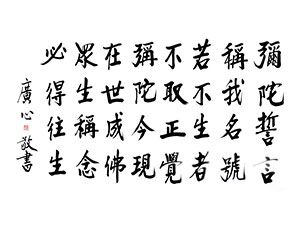 彌陀誓言
稱我名號
若不生者
不取正覺
彌陀今現
在世成佛
眾生稱念
必得往生
廣心敬書